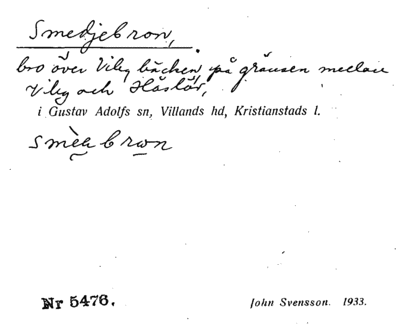 Smedjebron,
bro över Viby bäcken, på gränsen mellan
Viby och Håslöv,
i Gustav Adolfs sn, Villands hd, Kristianstads l.
Nr 5476.
John Svensson. 1933.